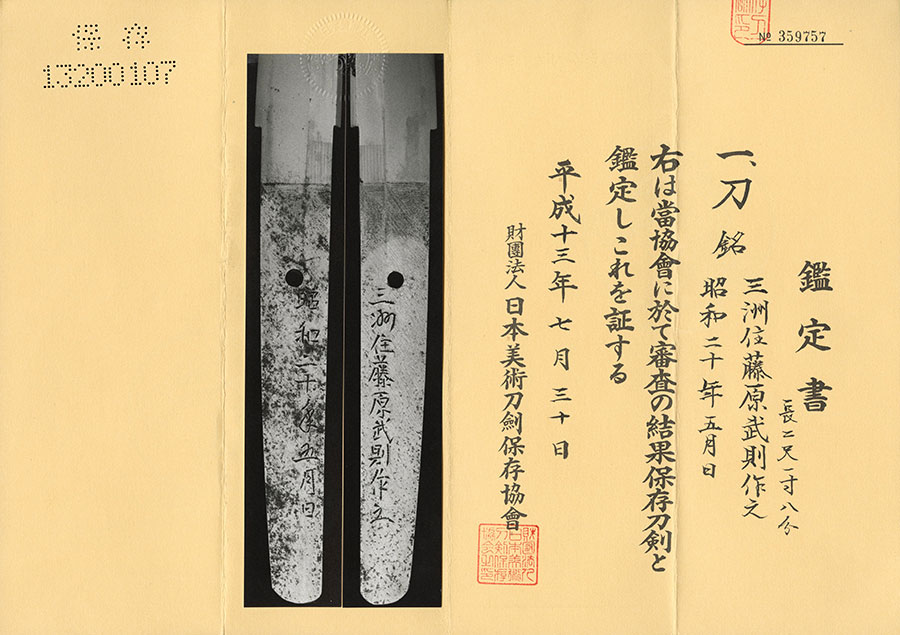 保存
13200107
№ 359757
鑑定書
一、刀 銘 三洲住藤原武則作之
昭和二十年五月日
長二尺一寸八分
右は當協會に於て審査の結果保存刀剣と
鑑定しこれを証する
平成十三年七月三十日
財團法人日本美術刀劍保存協會
三洲住藤原武則作之
昭和二十年五月日